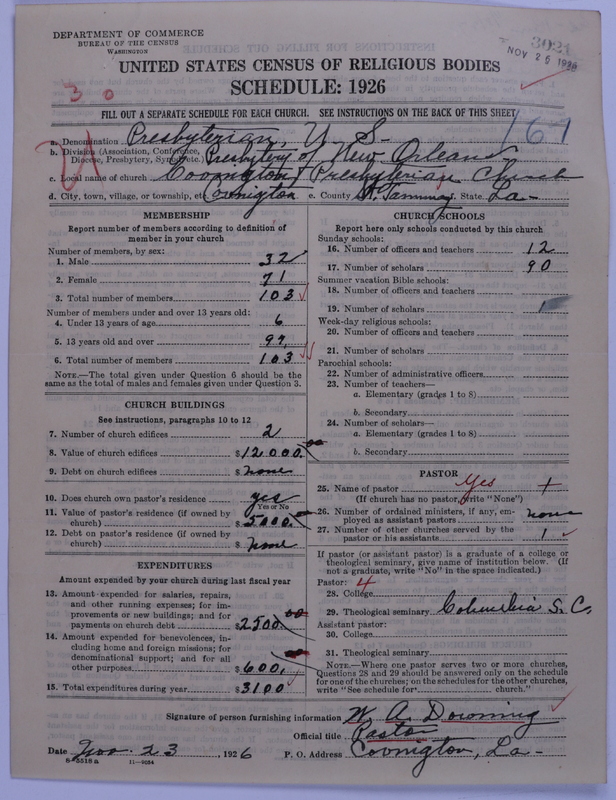 DEPARTMENT OF COMMERCE
BUREAU OF THE CENSUS
WASHINGTON
3021
NOV 26 1926
UNITED STATES CENSUS OF RELIGIOUS BODIES
SCHEDULE: 1926
3 0
FILL OUT A SEPARATE SCHEDULE FOR EACH CHURCH. SEE INSTRUCTIONS ON THE BACK OF THIS SHEET
167
a. Denomination Presbyterian, U S-
b. Division (Association, Conference, Diocese, Presbytery, Synod, etc. Presbytery of New Orleans
c. Local name of church Covington Presbyterian Church
d. City, town, village, or township, etc. Covington e. County St. Tammany f. State La-
MEMBERSHIP
Report number of members according to definition of
member in your church
Number of members, by sex:
1. Male 32
2. Female 71
3. Total number of members 103
Number of members under and over 13 years old:
4. Under 13 years of age 6
5. 13 years old and over 97
6. Total number of members 103
NOTE.—The total given under Question 6 should be
same as the total of males and females given under Question 3.
CHURCH BUILDINGS
See instructions, paragraphs 10 to 12
7. Number of church edifices 2
8. Value of church edifices $12000.00
9. Debt on church edifices $ none
10. Does church own pastor's residence yes
Yes or No
11. Value of pastor's residence (if owned by
church) $5000.
12. Debt on pastor's residence (if owned by
church) $ none
EXPENDITURES
Amount expended by your church during last fiscal year
13. Amount expended for salaries, repairs,
and other running expenses; for im-
provements or new buildings; and for
payments on church debt $2500.00
14. Amount expended for benevolences, in-
cluding home and foreign missions; for
denominational support; and for all
other purposes $600.
15. Total expenditures during year $3100
CHURCH SCHOOLS
Report here only schools conducted by this church
Sunday schools:
16. Number of officers and teachers 12
17. Number of scholars 90
Summer vacation Bible schools:
18. Number of officers and teachers
19. Number of scholars
Week-day religious schools:
20. Number of officers and teachers
21. Number of scholars
Parochial schools:
22. Number of administrative officers
23. Number of teachers—
a. Elementary (grades 1 to 8)
b. Secondary
24. Number of scholars—
a. Elementary (grades 1 to 8)
b. Secondary
PASTOR
25. Name of pastor Yes +
(If church has no pastor, write "None")
26. Number of ordained ministers, if any, em-
ployed as assistant pastors none
27. Number of other churches served by the
pastor or his assistants 1
If pastor (or assistant pastor) is a graduate of a college or
theological seminary, give name of institution below. (If
not a graduate, write "No" in the space indicated.)
Pastor: 4
28. College
29. Theological seminary Columbia S. C.
Assistant pastor:
30. College
31. Theological seminary
NOTE.—Where one pastor serves two or more churches,
Questions 28 and 29 should be answered only on the schedule
for one of the churches; on the schedules for the other churches,
write "See schedule for church."
Signature of person furnishing information W. A. Downing
Official title Pastor
Date Nov. 23, 1926 P. O. Address Covington, La-
8-5518 a 11-9034